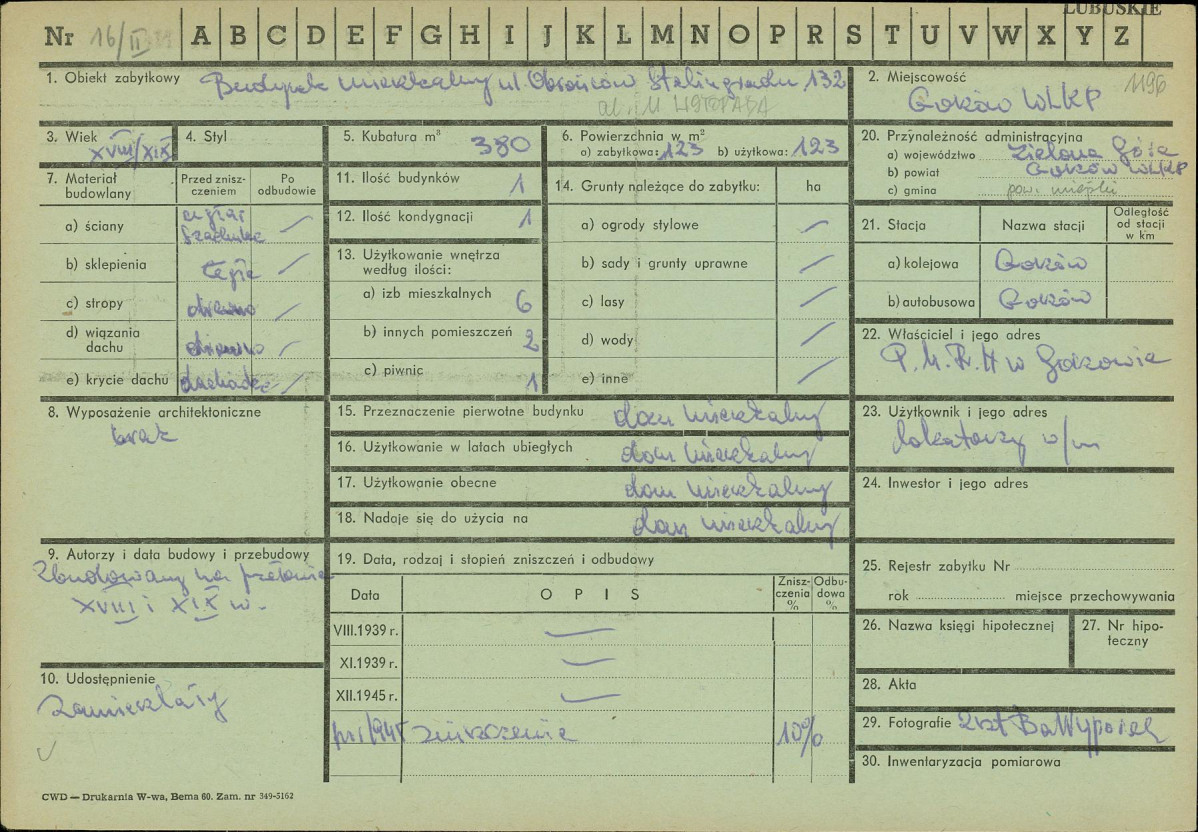 LUBUSKIE
Nr 16/II A B C D E F G H I J K L M N O P R S T U V W X Y Z
1. Obiekt zabytkowy Budynek mieszkalny ul. Obrońców Stalingradu 132
ul. 11 LISTOPADA
2. Miejscowość 1196
Gorzów WLKP
3. Wiek XVIII/XIX
4. Styl
5. Kubatura m³ 380
6. Powierzchnia w m²
a) zabytkowa: 123 b) użytkowa: 123
20. Przynależność administracyjna
a) województwo Zielona Góra
b) powiat Gorzów WLKP
c) gmina pow. miejski
7. Materiał budowlany
Przed zniszczeniem
Po odbudowie
a) ściany
b) sklepienia
c) stropy drewno
d) wiązania dachu drewno
e) krycie dachu dachówka
11. Ilość budynków 1
12. Ilość kondygnacji 1
13. Użytkowanie wnętrza
według ilości:
a) izb mieszkalnych 6
b) innych pomieszczeń 2
c) piwnic 1
14. Grunty należące do zabytku: ha
a) ogrody stylowe
b) sady i grunty uprawne
c) lasy
d) wody
e) inne
21. Stacja Nazwa stacji Odległość od stacji w km
a) kolejowa Gorzów
b) autobusowa Gorzów
22. Właściciel i jego adres
w Gorzowie
8. Wyposażenie architektoniczne
brak
15. Przeznaczenie pierwotne budynku dom mieszkalny
16. Użytkowanie w latach ubiegłych dom mieszkalny
17. Użytkowanie obecne dom mieszkalny
18. Nadaje się do użycia na dom mieszkalny
23. Użytkownik i jego adres
lokatorzy w/m
24. Inwestor i jego adres
9. Autorzy i data budowy i przebudowy
Zbudowany na przełomie
XVIII i XIX w.
10. Udostępnienie
zamieszkały
19. Data, rodzaj i stopień zniszczeń i odbudowy
Data OPIS Zniszczenia % Odbudowa %
VIII.1939 r.
XI.1939 r.
XII.1945 r.
po 1945 zniszczenie 10%
25. Rejestr zabytku Nr
rok miejsce przechowywania
26. Nazwa księgi hipotecznej
27. Nr hipoteczny
28. Akta
29. Fotografie 2 szt
30. Inwentaryzacja pomiarowa
CWD — Drukarnia W-wa, Bema 60. Zam. nr 349-5162